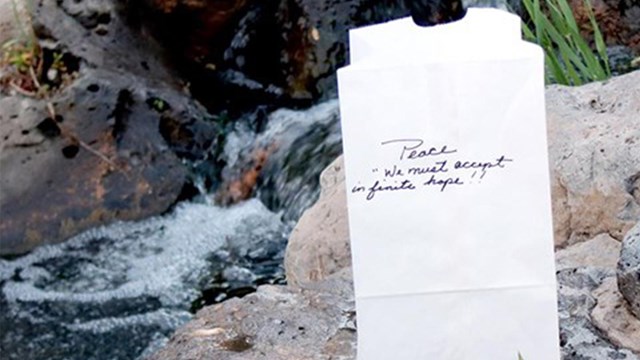 Peace
"We must accept
in finite hope!!